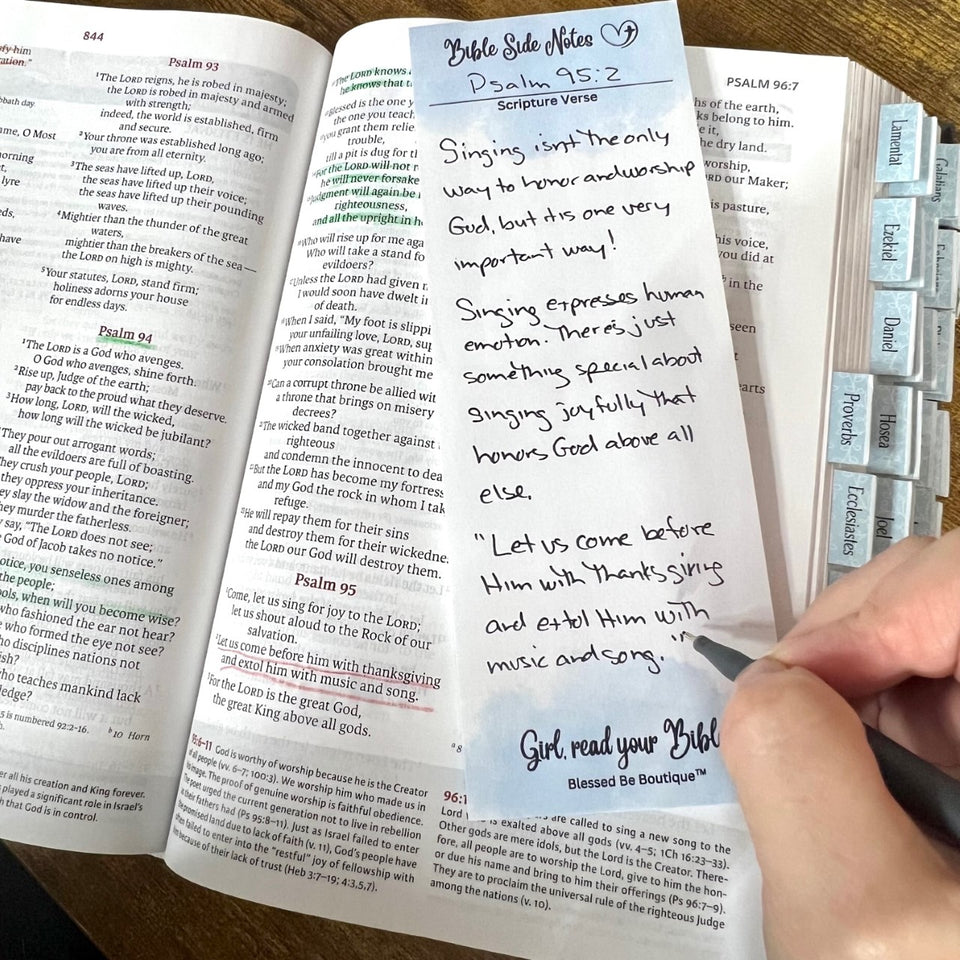 844
fy him
ation."
bbath day.
ame, O Most
orning
lyre
have
Psalm 93
¹The LORD reigns, he is robed in majesty;
the LORD is robed in majesty and armed
with strength;
indeed, the world is established, firm
and secure.
²Your throne was established long ago;
you are from all eternity.
³The seas have lifted up, LORD,
the seas have lifted up their voice;
the seas have lifted up their pounding
waves.
⁴Mightier than the thunder of the great
waters,
mightier than the breakers of the sea—
the LORD on high is mighty.
⁵Your statutes, LORD, stand firm;
holiness adorns your house
for endless days.
Psalm 94
¹The LORD is a God who avenges.
O God who avenges, shine forth.
²Rise up, Judge of the earth;
pay back to the proud what they deserve.
³How long, LORD, will the wicked,
how long will the wicked be jubilant?
They pour out arrogant words;
all the evildoers are full of boasting.
They crush your people, LORD;
they oppress your inheritance.
They slay the widow and the foreigner;
they murder the fatherless.
say, "The LORD does not see;
God of Jacob takes no notice."
otice, you senseless ones among
the people;
ools, when will you become wise?
who fashioned the ear not hear?
who formed the eye not see?
ho disciplines nations not
ish?
ho teaches mankind lack
ledge?
5 is numbered 92:2-16. ᵇ 10 Horn
er all his creation and King forever.
played a significant role in Israel's
h that God is in control.
The LORD knows
he knows that t
Blessed is the one y
the one you teach
you grant them relie
trouble,
till a pit is dug for th
For the LORD will not r
he will never forsake
Judgment will again be
righteousness,
and all the upright in h
Who will rise up for me aga
Who will take a stand fo
evildoers?
Unless the LORD had given
I would soon have dwelt in
of death.
When I said, "My foot is slippi
your unfailing love, LORD, sup
When anxiety was great within
your consolation brought me
Can a corrupt throne be allied wit
a throne that brings on misery
decrees?
The wicked band together against
righteous
and condemn the innocent to dea
But the LORD has become my fortress
and my God the rock in whom I tak
refuge.
He will repay them for their sins
and destroy them for their wickedne
the LORD our God will destroy them.
Psalm 95
¹Come, let us sing for joy to the LORD;
let us shout aloud to the Rock of our
salvation.
²Let us come before him with thanksgiving
and extol him with music and song.
³For the LORD is the great God,
the great King above all gods.
95:6–11 God is worthy of worship because he is the Creator
of all people (vv. 6–7; 100:3). We worship him who made us in
his image. The proof of genuine worship is faithful obedience.
The poet urged the current generation not to live in rebellion
as their fathers had (Ps 95:8–11). Just as Israel failed to enter
the promised land due to lack of faith (v. 11), God's people have
often failed to enter into the "restful" joy of fellowship with
him because of their lack of trust (Heb 3:7–19; 4:3,5,7).
Bible Side Notes
Psalm 95:2
Scripture Verse
Singing isn't the only
way to honor and worship
God, but it is one very
important way!
Singing expresses human
emotion. There's just
something special about
singing joyfully that
honors God above all
else.
"Let us come before
Him with thanksgiving
and extol Him with
music and song."
Girl, read your Bibl
Blessed Be Boutique™
PSALM 96:7
hs of the earth,
ks belong to him.
e it,
he dry land.
worship,
RD our Maker;
is pasture,
his voice,
you did at
in the
seen
earts
ᵃ 8
96:1
Lord are called to sing a new song to the
is exalted above all gods (vv. 4–5; 1Ch 16:23–33).
Other gods are mere idols, but the Lord is the Creator. There-
fore, all people are to worship the Lord, give to him the hon-
or due his name and bring to him their offerings (Ps 96:7–9).
They are to proclaim the universal rule of the righteous Judge
among the nations (v. 10).
Lamentat
Ezekiel
Daniel
Hosea
Joel
Proverbs
Ecclesiastes
Galatians